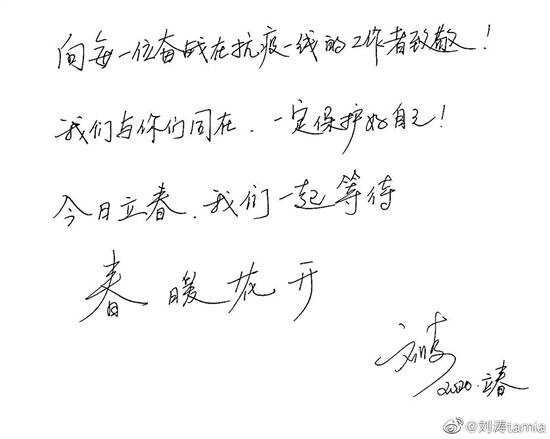 向每一位奋战在抗疫一线的工作者致敬!
我们与你们同在.一定保护好自己!
今日立春.我们一起等待
春暖花开
刘涛
2020.立春
@刘涛tamia